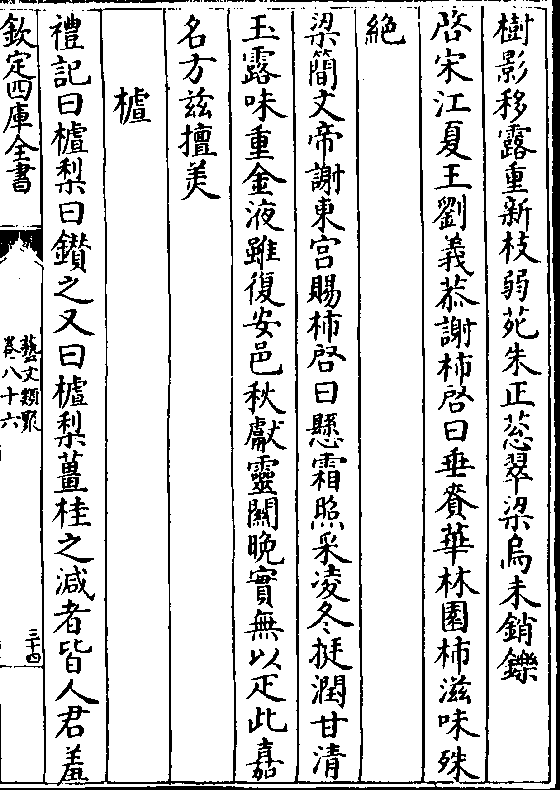 樹影移露重新枝弱苑朱正葱翠梁烏未銷鑠
啓宋江夏王劉義恭謝柿啓曰垂賚華林園柿滋味殊
絶
梁簡文帝謝東宮賜柿啓曰懸霜照采凌冬挺潤甘清
玉露味重金液雖復安邑秋獻靈關晚實無以疋此嘉
名方兹擅美
樝
禮記曰樝梨曰鑚之又曰樝梨薑桂之減者皆人君羞
欽定四庫全書
藝文類聚
卷八十六
三十四